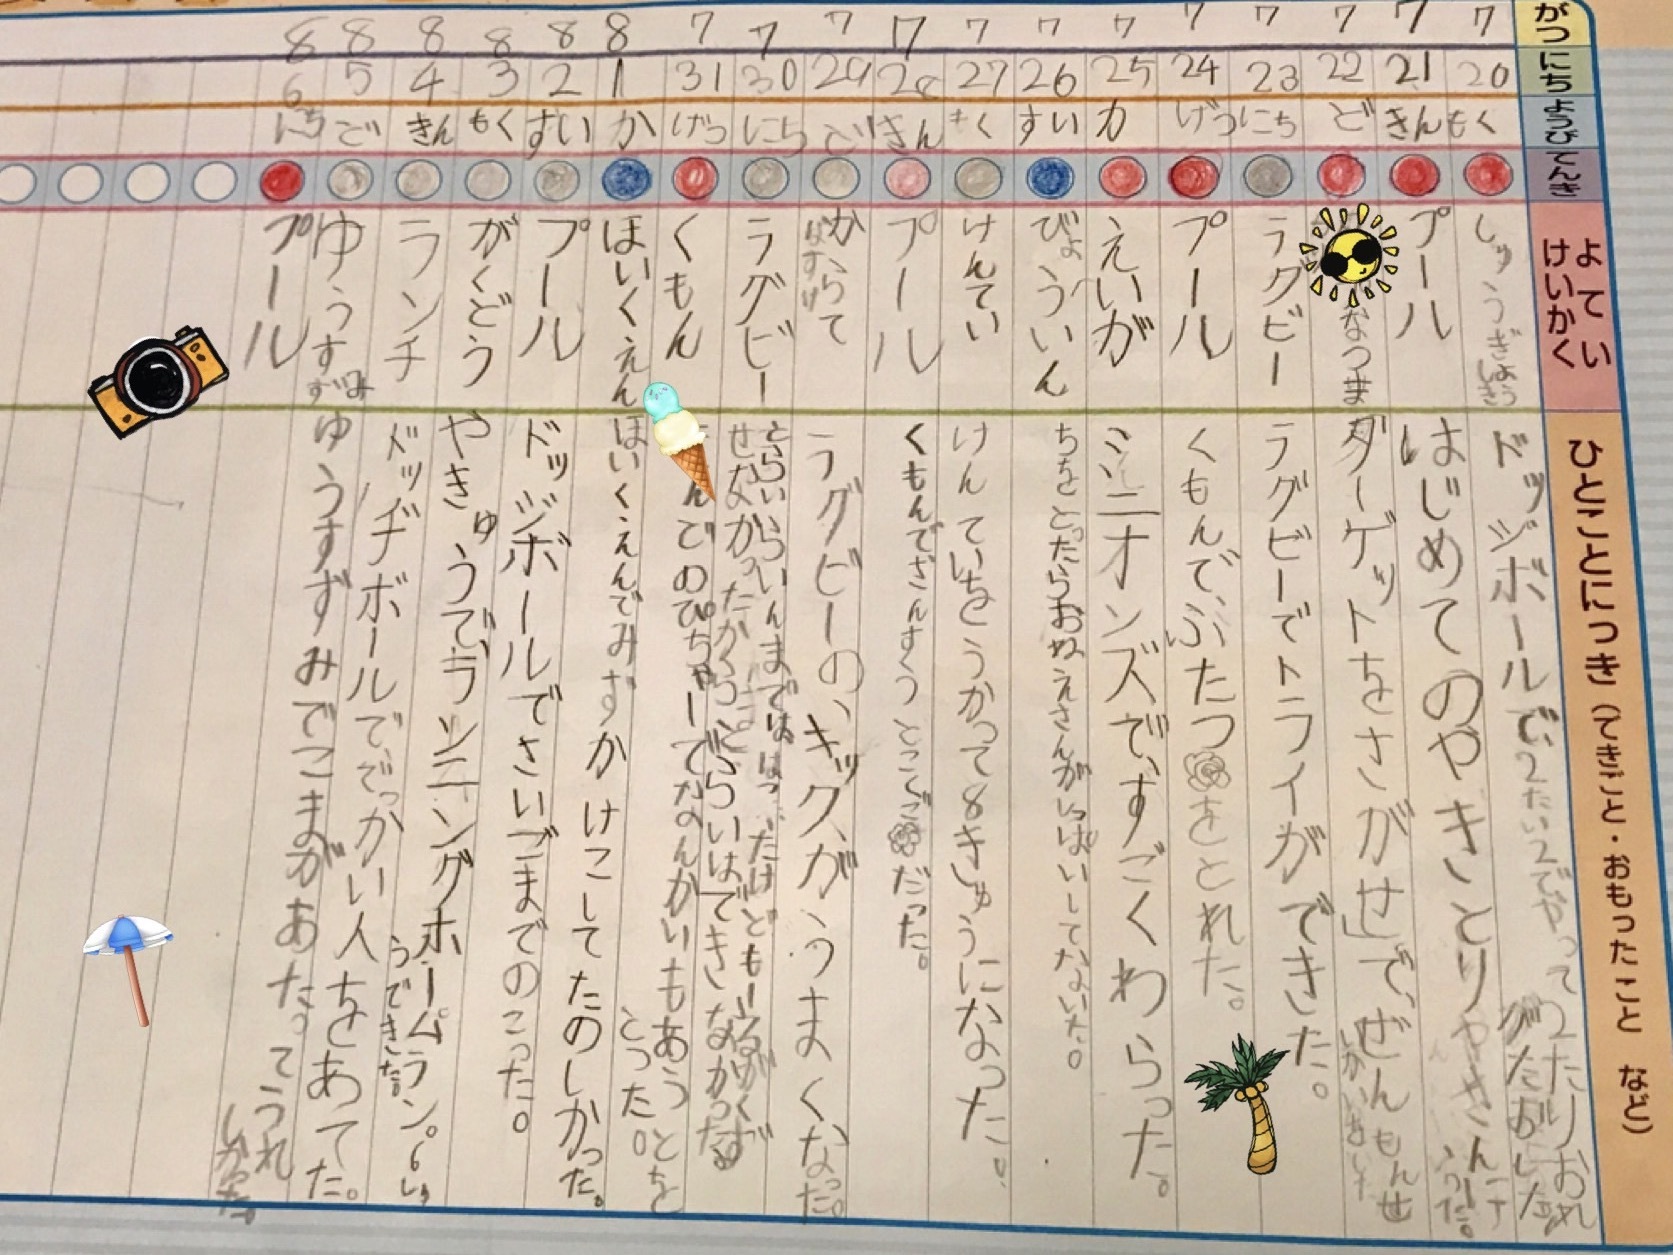 がつ
7 7 7 7 7 7 7 7 7 7 7 7 8 8 8 8 8 8
にち
20 21 22 23 24 25 26 27 28 29 30 31 1 2 3 4 5 6
ようび
もく きん ど にち げつ か すい もく きん ど にち げつ か すい もく きん ど にち
てんき
よてい
けいかく
しゅうぎょうしき
プール
なつま
ラグビー
プール
えいが
びょういん
けんてい
プール
からて
ラグビー
くもん
ほいくえん
プール
がくどう
ランチ
ゆうすずみ
プール
ひとことにっき（できごと・おもったこと など）
ドッジボールで、2たい2でやって2たりおれがたおした。
はじめてのやきとりやさんに
ターゲットをさがせ」で、ぜんもんせいかいした
ラグビーでトライができた。
くもんでぶたつをとれた。
ミニオンズで、すごくわらった。
ちをとったらおねえさんがしっぱいしてないた。
けんていをうかって8きゅうになった。
くもんでさんすうのとこで だった。
ラグビーの、キックが、うまくなった。
んでのぴちゃーでなんかいもあうとをとった。
ほいくえんでみずかけこしてたのしかった。
ドッジボールでさいごまでのこった。
やきゅうで、ランニングホームラン。6しゅうできた。
ドッヂボールででっかい人をあてた。
ゆうすずみでこまがあった。てうれしかった。